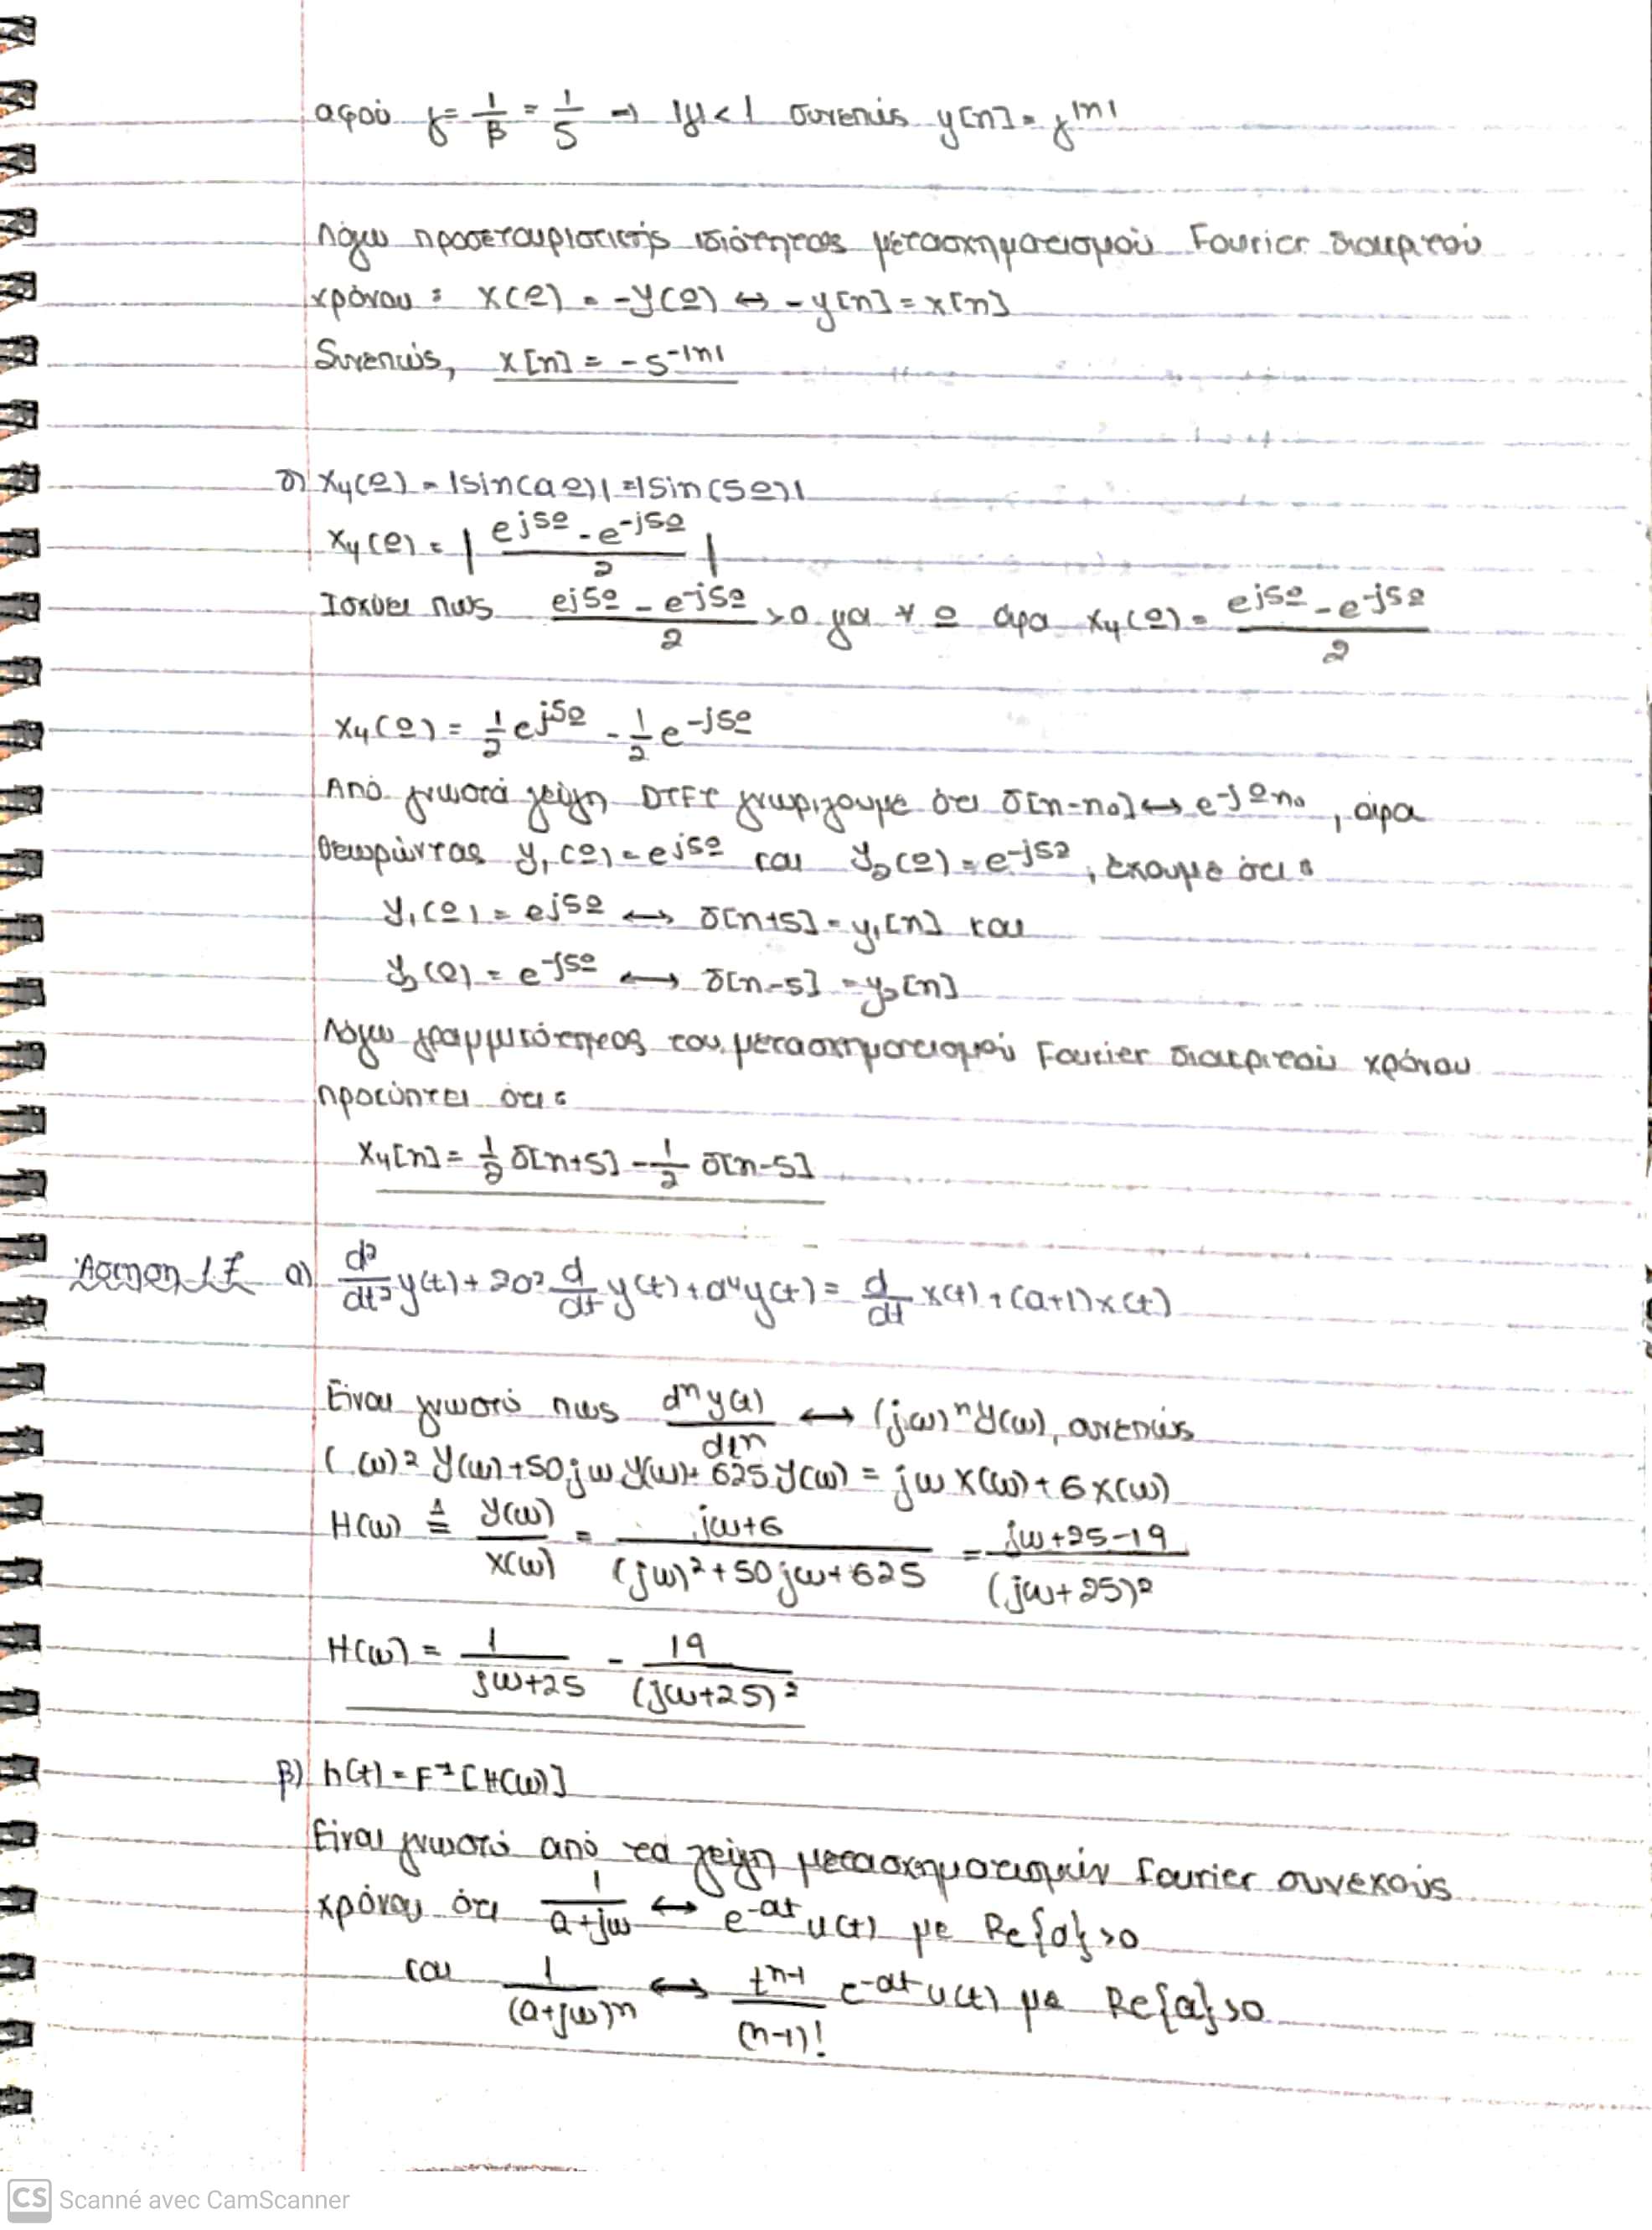 αφού γ = 1/β = 1/5 → |γ| < 1 συνεπώς y[n] = γ^|n|
Λόγω προσεταιριστικής ιδιότητας μετασχηματισμού Fourier διακριτού
χρόνου: X(Ω) = -Y(Ω) ↔ -y[n] = x[n]
Συνεπώς, x[n] = -5^-|n|
δ) X₄(Ω) = |sin(aΩ)| = |sin(5Ω)|
X₄(Ω) = | (e^j5Ω - e^-j5Ω)/2 |
Ισχύει πως (e^j5Ω - e^-j5Ω)/2 > 0 για ∀ Ω άρα X₄(Ω) = (e^j5Ω - e^-j5Ω)/2
X₄(Ω) = 1/2 e^j5Ω - 1/2 e^-j5Ω
Από γνωστά ζεύγη DTFT γνωρίζουμε ότι δ[n-n₀] ↔ e^-jΩn₀, άρα
θεωρώντας Y₁(Ω) = e^j5Ω και Y₂(Ω) = e^-j5Ω, έχουμε ότι:
Y₁(Ω) = e^j5Ω ↔ δ[n+5] = y₁[n] και
Y₂(Ω) = e^-j5Ω ↔ δ[n-5] = y₂[n]
Λόγω γραμμικότητας του μετασχηματισμού Fourier διακριτού χρόνου
προκύπτει ότι:
x₄[n] = 1/2 δ[n+5] - 1/2 δ[n-5]
Άσκηση 1.7 α) d²/dt² y(t) + 2a² d/dt y(t) + a⁴y(t) = d/dt x(t) + (a+1)x(t)
Είναι γνωστό πως dⁿy(t)/dtⁿ ↔ (jω)ⁿ Y(ω), συνεπώς
(jω)² Y(ω) + 50jω Y(ω) + 625 Y(ω) = jω X(ω) + 6 X(ω)
H(ω) ≜ Y(ω)/X(ω) = (jω+6)/((jω)² + 50jω + 625) = (jω+25-19)/(jω+25)²
H(ω) = 1/(jω+25) - 19/(jω+25)²
β) h(t) = F⁻¹[H(ω)]
Είναι γνωστό από τα ζεύγη μετασχηματισμών Fourier συνεχούς
χρόνου ότι 1/(a+jω) ↔ e^-at u(t) με Re{a}>0
και 1/(a+jω)ⁿ ↔ tⁿ⁻¹/(n-1)! e^-at u(t) με Re{a}>0
CS Scanné avec CamScanner